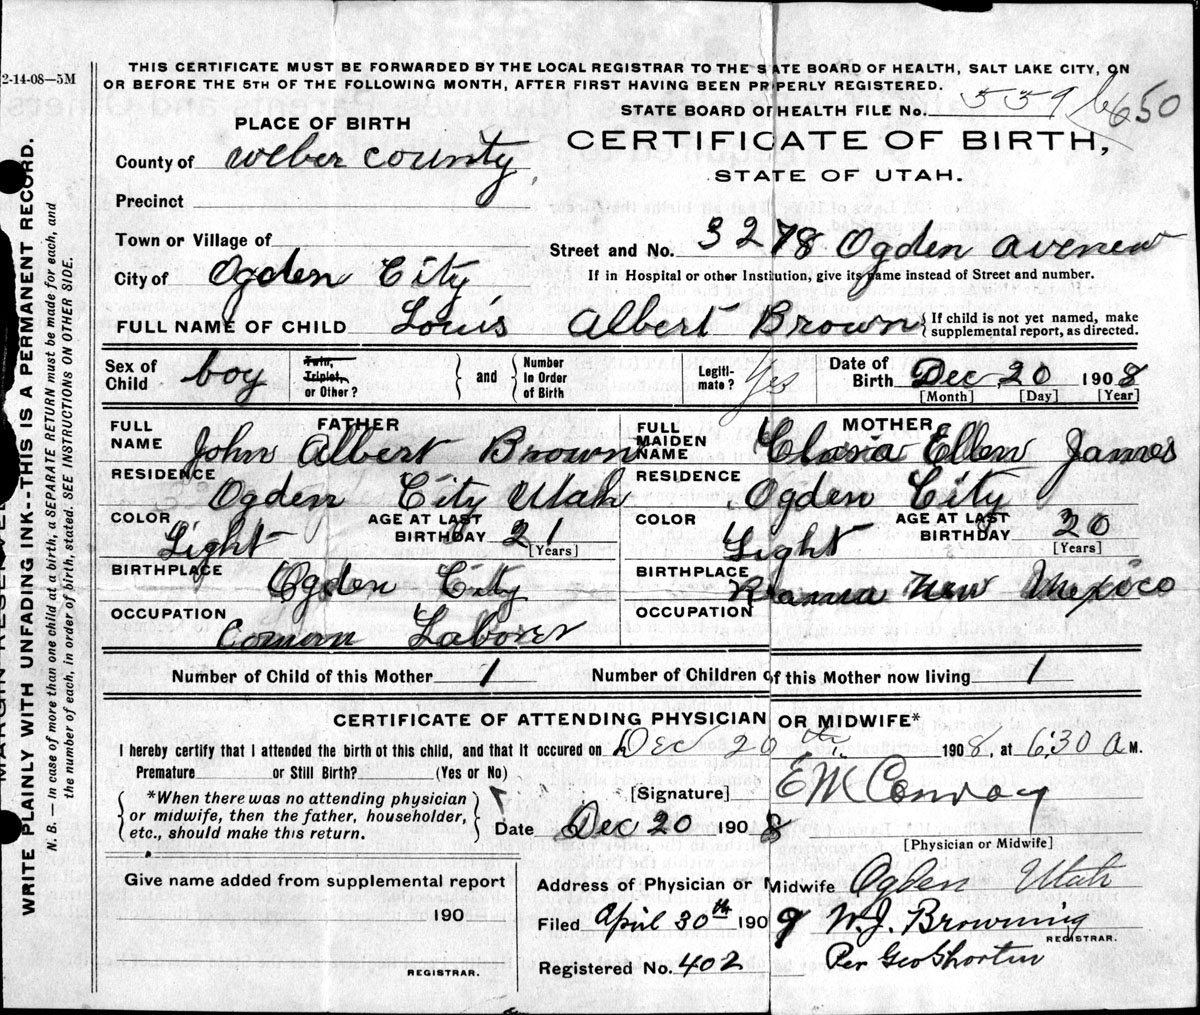 2-14-08—5M
THIS CERTIFICATE MUST BE FORWARDED BY THE LOCAL REGISTRAR TO THE STATE BOARD OF HEALTH, SALT LAKE CITY, ON
OR BEFORE THE 5TH OF THE FOLLOWING MONTH, AFTER FIRST HAVING BEEN PROPERLY REGISTERED.
STATE BOARD OF HEALTH FILE No. 559 650
PLACE OF BIRTH
CERTIFICATE OF BIRTH,
STATE OF UTAH.
County of Weber County
Precinct
Town or Village of
Street and No. 3278 Ogden Avenew
City of Ogden City
If in Hospital or other Institution, give its name instead of Street and number.
FULL NAME OF CHILD Louis Albert Brown { If child is not yet named, make
supplemental report, as directed.
Sex of Child boy
Twin, Triplet, or Other? } and { Number In Order of Birth
Legiti-mate? Yes
Date of Birth Dec 20 1908
[Month] [Day] [Year]
FATHER
FULL NAME John Albert Brown
MOTHER
FULL MAIDEN NAME Clara Ellen James
RESIDENCE Ogden City Utah
RESIDENCE Ogden City
COLOR Light AGE AT LAST BIRTHDAY 21 [Years]
COLOR Light AGE AT LAST BIRTHDAY 20 [Years]
BIRTHPLACE Ogden City
BIRTHPLACE New Mexico
OCCUPATION Laborer
OCCUPATION
Number of Child of this Mother 1 Number of Children of this Mother now living 1
CERTIFICATE OF ATTENDING PHYSICIAN OR MIDWIFE*
I hereby certify that I attended the birth of this child, and that it occured on Dec 20 th 1908, at 6:30 A M.
Premature or Still Birth? (Yes or No)
{ *When there was no attending physician
or midwife, then the father, householder,
etc., should make this return. }
[Signature] E M Conroy
Date Dec 20 1908
[Physician or Midwife]
Give name added from supplemental report
190
REGISTRAR.
Address of Physician or Midwife Ogden Utah
Filed April 30th 1909 W. J. Browning
REGISTRAR.
Registered No. 402 Per Geo Shortin
MARGIN RESERVE
WRITE PLAINLY WITH UNFADING INK--THIS IS A PERMANENT RECORD.
N. B. — In case of more than one child at a birth, a SEPARATE RETURN must be made for each, and
the number of each, in order of birth, stated. SEE INSTRUCTIONS ON OTHER SIDE.